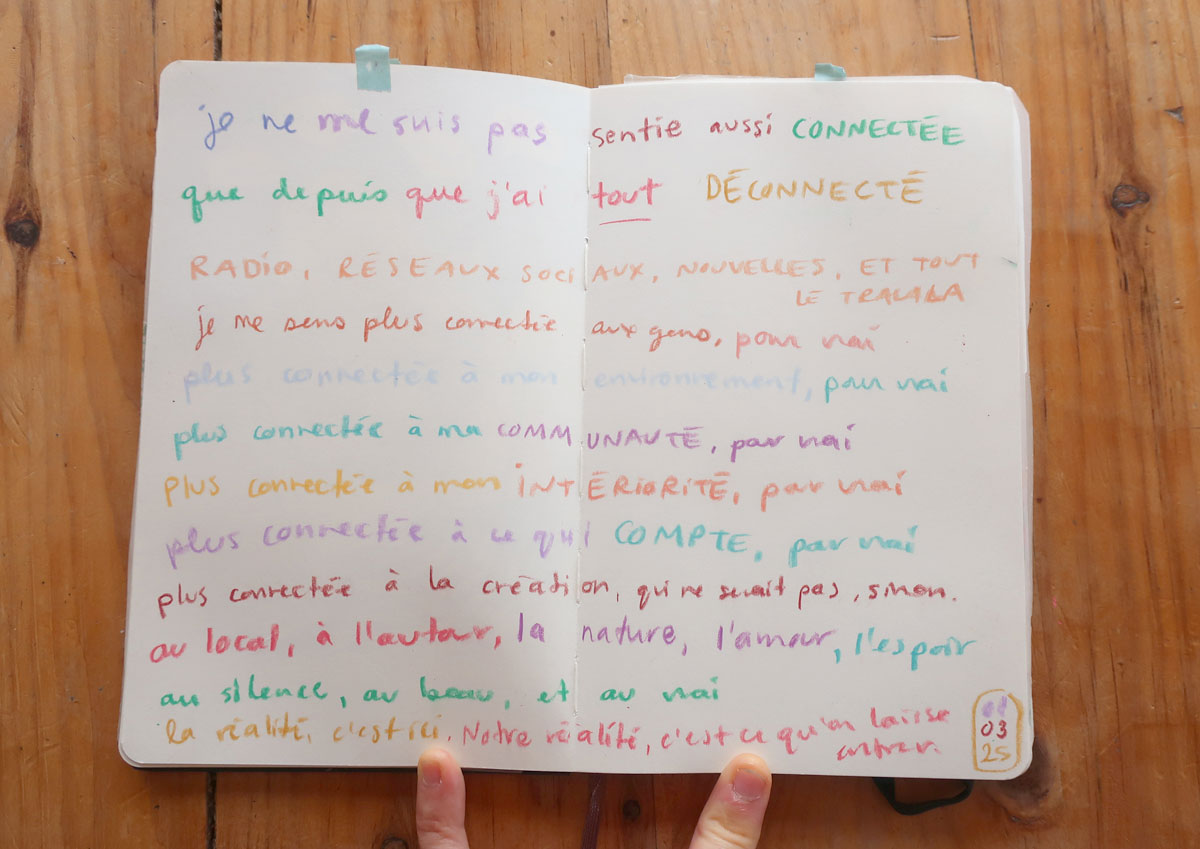 je ne me suis pas sentie aussi CONNECTÉE
que depuis que j'ai tout DÉCONNECTÉ
RADIO, RÉSEAUX SOCIAUX, NOUVELLES, ET TOUT
LE TRALALA
je me sens plus connectée aux gens, pour vrai
plus connectée à mon environnement, pour vrai
plus connectée à ma COMMUNAUTÉ, pour vrai
plus connectée à mon INTÉRIORITÉ, pour vrai
plus connectée à ce qui COMPTE, pour vrai
plus connectée à la création, qui ne serait pas, sinon.
au local, à l'autour, la nature, l'amour, l'espoir
au silence, au beau, et au vrai
la réalité, c'est ici. Notre réalité, c'est ce qu'on laisse
entrer.
03
25